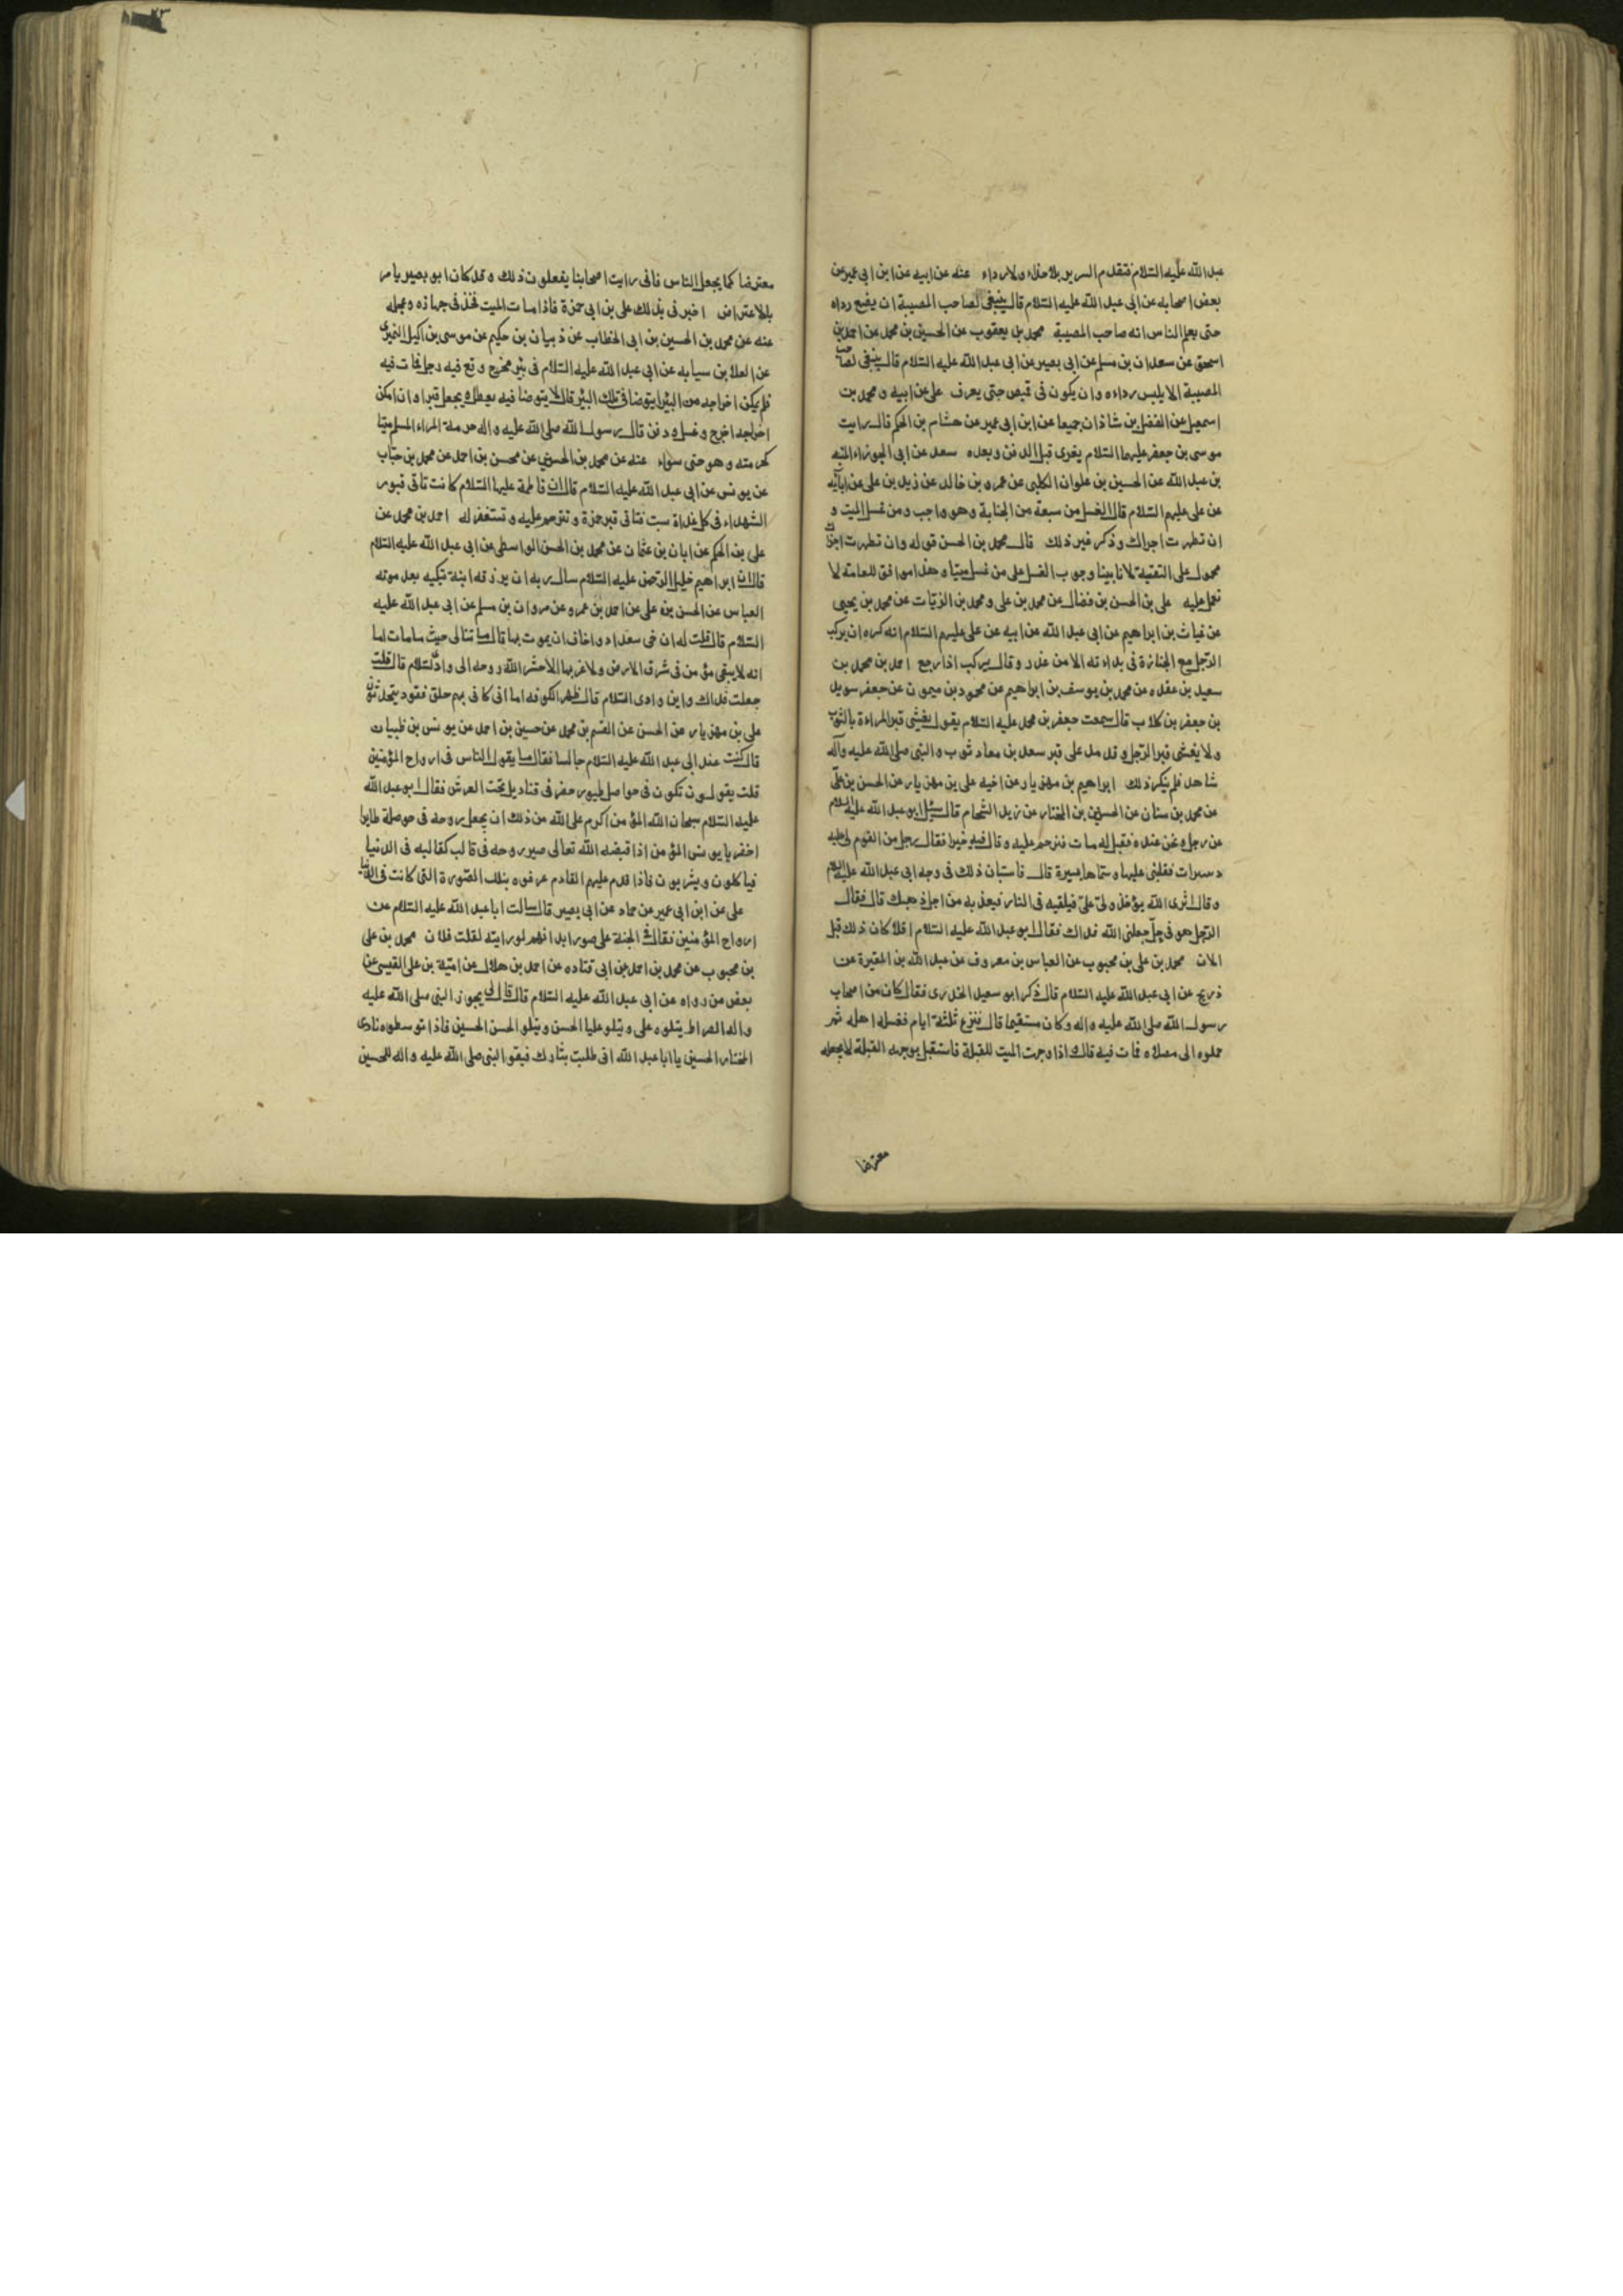 عبد الله عليه السلام فتقدم السرير بلا حذاء ولا رداء عنه عن ابيه عن ابن ابي عمير عن
بعض اصحابه عن ابى عبد الله عليه السلام قال ينبغى لصاحب المصيبة ان يضع رداه
حتى يعلم الناس انه صاحب المصيبة محمد بن يعقوب عن الحسين بن محمد عن احمد بن
اسحق عن سعدان بن مسلم عن ابى بصير عن ابى عبد الله عليه السلام قال ينبغى لصاحب
المصيبة الا يلبس رداءه وان يكون فى قميص حتى يعرف على عن ابيه ومحمد بن
اسمعيل عن الفضل بن شاذان جميعا عن ابن ابى عمير عن هشام بن الحكم قال رايت
موسى بن جعفر عليهما السلام يعزى قبل الدفن وبعده سعد عن ابى الجوزاء المنبه
بن عبد الله عن الحسين بن علوان الكلبى عن عمرو بن خالد عن زيد بن على عن ابائه
عن على عليهم السلام قال الغسل من سبعة من الجنابة وهو واجب ومن غسل الميت و
ان تطهرت اجزاك وذكر غير ذلك قال محمد بن الحسن قوله وان تطهرت اجزاك
محمول على التقية لانا بينا وجوب الغسل على من غسل ميتا وهذا موافق للعامة لا
نعمل عليه على بن الحسن بن فضال عن محمد بن على ومحمد بن الزيات عن محمد بن يحيى
عن غياث بن ابراهيم عن ابى عبد الله عن ابيه عن على عليهم السلام انه كره ان يركب
الرجل مع الجنازة فى بداءته الا من عذر وقال يركب اذا رجع احمد بن محمد بن
سعيد بن عقده عن محمد بن يوسف بن ابراهيم عن محمود بن ميمون عن جعفر سويد
بن جعفر بن كلاب قال سمعت جعفر بن محمد عليه السلام يقول يغشى قبر المراءة بالثوب
ولا يغشى قبر الرجل وقد مد على قبر سعد بن معاد ثوب والنبى صلى الله عليه وآله
شاهد فلم ينكر ذلك ابراهيم بن مهزيار عن اخيه على بن مهزيار عن الحسن بن على
عن محمد بن سنان عن الحسين بن المختار عن زيد الشحام قال سئل ابو عبد الله عليه السلام
عن رجل ونحن عنده فقيل له مات فترحم عليه وقال فيه خيرا فقال رجل من القوم لى عليه
دسرات فغلبنى عليها وسماها يسيرة قال فاستبان ذلك فى وجه ابى عبد الله عليه السلام
وقال اترى الله يؤخذ ولى على فيلقيه فى النار فيعذبه من اجل ذهبك قال فقال
الرجل هو فى حل جعلنى الله فداك فقال ابو عبد الله عليه السلام افلا كان ذلك قبل
الان محمد بن على بن محبوب عن العباس بن معروف عن عبد الله بن المغيرة عن
ذريح عن ابى عبد الله عليه السلام قال ذكر ابو سعيد الخدرى فقال كان من اصحاب
رسول الله صلى الله عليه واله وكان مستقيما قال فنزع ثلثة ايام فغسله اهله ثم
حملوه الى مصلاه فمات فيه قال اذا وجهت الميت للقبلة فاستقبل بوجهه القبلة لا يجعله
معترضا
معترضا كما يجعل الناس فانى رايت اصحابنا يفعلون ذلك وقد كان ابو بصير يامر
بالاعتراض اخبرنى بذلك على بن ابى حمزة فاذا مات الميت فخذ فى جهازه وعجله
عنه عن محمد بن الحسين بن ابى الخطاب عن ذبيان بن حكيم عن موسى بن اكيل النميرى
عن العلا بن سيابه عن ابى عبد الله عليه السلام فى بئر مخرج وقع فيه رجل فمات فيه
فلم يمكن اخراجه من البئر ايتوضا فى تلك البئر قال لا يتوضا فيه يعطل ويجعل قبرا وان امكن
اخراجه اخرج وغسل ودفن قال رسول الله صلى الله عليه واله حرمة المراء المسلم ميتا
كحرمته وهو حى سواء عنه عن محمد بن الحسين عن محسن بن احمد عن محمد بن حباب
عن يونس عن ابى عبد الله عليه السلام قال ان فاطمة عليها السلام كانت تاتى قبور
الشهداء فى كل غداة سبت فتاتى قبر حمزة وتترحم عليه وتستغفر له احمد بن محمد عن
على بن الحكم عن ابان بن عثمان عن محمد بن الحسن الواسطى عن ابى عبد الله عليه السلام
قال ان ابراهيم خليل الرحمن عليه السلام سال ربه ان يرزقه ابنة تبكيه بعد موته
العباس عن الحسن بن على عن احمد بن عمرو عن مروان بن مسلم عن ابى عبد الله عليه
السلام قال قلت له ان اخى بغداد واخاف ان يموت بها قال ما تبالى حيث ما مات اما
انه لا يبقى مؤمن فى شرق الارض ولا غربها الا حشر الله روحه الى وادى السلام قال قلت
جعلت فداك واين وادى السلام قال ظهر الكوفه اما انى كانى بهم حلق قعود يتحدثون
على بن مهزيار عن الحسن عن القسم بن محمد عن حسين بن احمد عن يونس بن ظبيان
قال كنت عند ابى عبد الله عليه السلام جالسا فقال ما يقول الناس فى ارواح المؤمنين
قلت يقولون تكون فى حواصل طيور خضر فى قناديل تحت العرش فقال ابو عبد الله
عليه السلام سبحان الله المؤمن اكرم على الله من ذلك ان يجعل روحه فى حوصلة طاير
اخضر يا يونس المؤمن اذا قبضه الله تعالى صير روحه فى قالب كقالبه فى الدنيا
فياكلون ويشربون فاذا قدم عليهم القادم عرفوه بتلك الصورة التى كانت فى الدنيا
على عن ابن ابى عمير عن حماد عن ابى بصير قال سالت ابا عبد الله عليه السلام عن
ارواح المؤمنين فقال فى الجنة على صور ابدانهم لو رايته لقلت فلان محمد بن على
بن محبوب عن محمد بن احمد بن ابى قتاده عن احمد بن هلال عن امية بن على القيسى عن
بعض من رواه عن ابى عبد الله عليه السلام قال قال لى يجوز النبى صلى الله عليه
واله الصراط يتلوه على ويتلو عليا الحسن ويتلو الحسن الحسين فاذا توسطوه نادى
المختار الحسين يا ابا عبد الله انى طلبت بثارك فيقول النبى صلى الله عليه واله للحسين